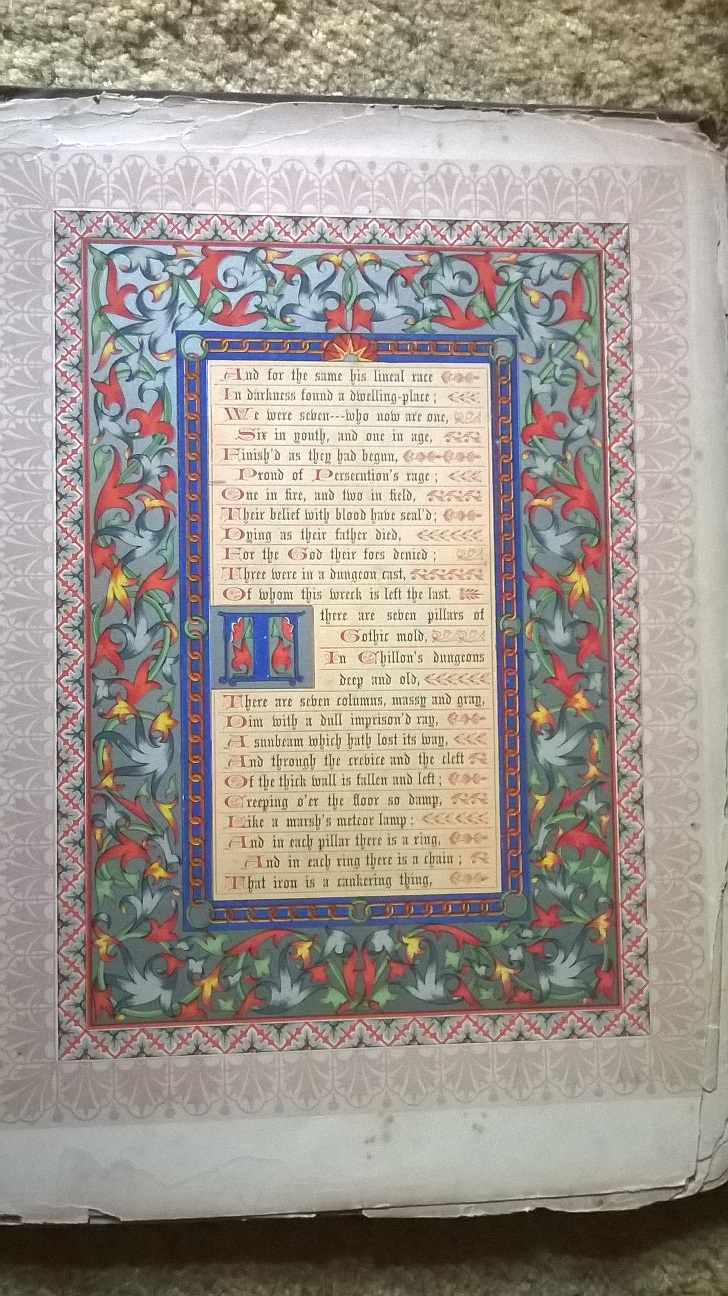 And for the same his lineal race
In darkness found a dwelling-place;
We were seven---who now are one,
Six in youth, and one in age,
Finish'd as they had begun,
Proud of Persecution's rage;
One in fire, and two in field,
Their belief with blood have seal'd;
Dying as their father died,
For the God their foes denied;
Three were in a dungeon cast,
Of whom this wreck is left the last.
T there are seven pillars of
Gothic mold,
In Chillon's dungeons
deep and old,
There are seven columns, massy and gray,
Dim with a dull imprison'd ray,
A sunbeam which hath lost its way,
And through the crevice and the cleft
Of the thick wall is fallen and left;
Creeping o'er the floor so damp,
Like a marsh's meteor lamp:
And in each pillar there is a ring,
And in each ring there is a chain;
That iron is a cankering thing,